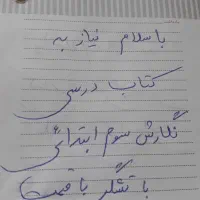 با سلام نیاز به
کتاب درسی
نگارش سوم ابتدائی
با تشکر با قیمت